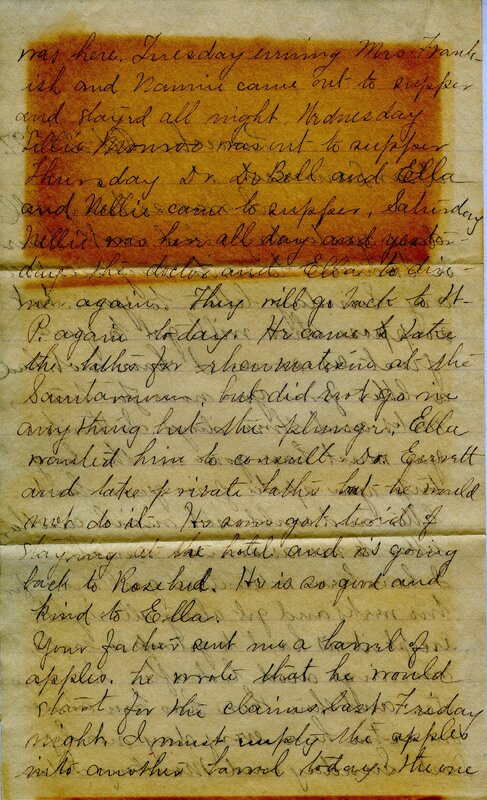 was here. Tuesday evening Mrs Frank-
ish and Nannie came out to supper
and stayed all night. Wednesday
Lillie Monroe was out to supper
Thursday Dr. DeBell and Ella
and Nellie came to supper, Saturday
Nellie was here all day and yester-
day the doctor and Ella to din-
ner again. They will go back to St
P. again today. He came to take
the baths for rheumatism at the
Sanitarium but did not go in
anything but the plunge. Ella
wanted him to consult Dr. Everett
and take private baths but he would
not do it. He soon got tired of
staying at the hotel and is going
back to Rosebud. He is so good and
kind to Ella.
Your father sent me a barrel of
apples. he wrote that he would
start for the claims last Friday
night. I must empty the apples
into another barrel today. the one